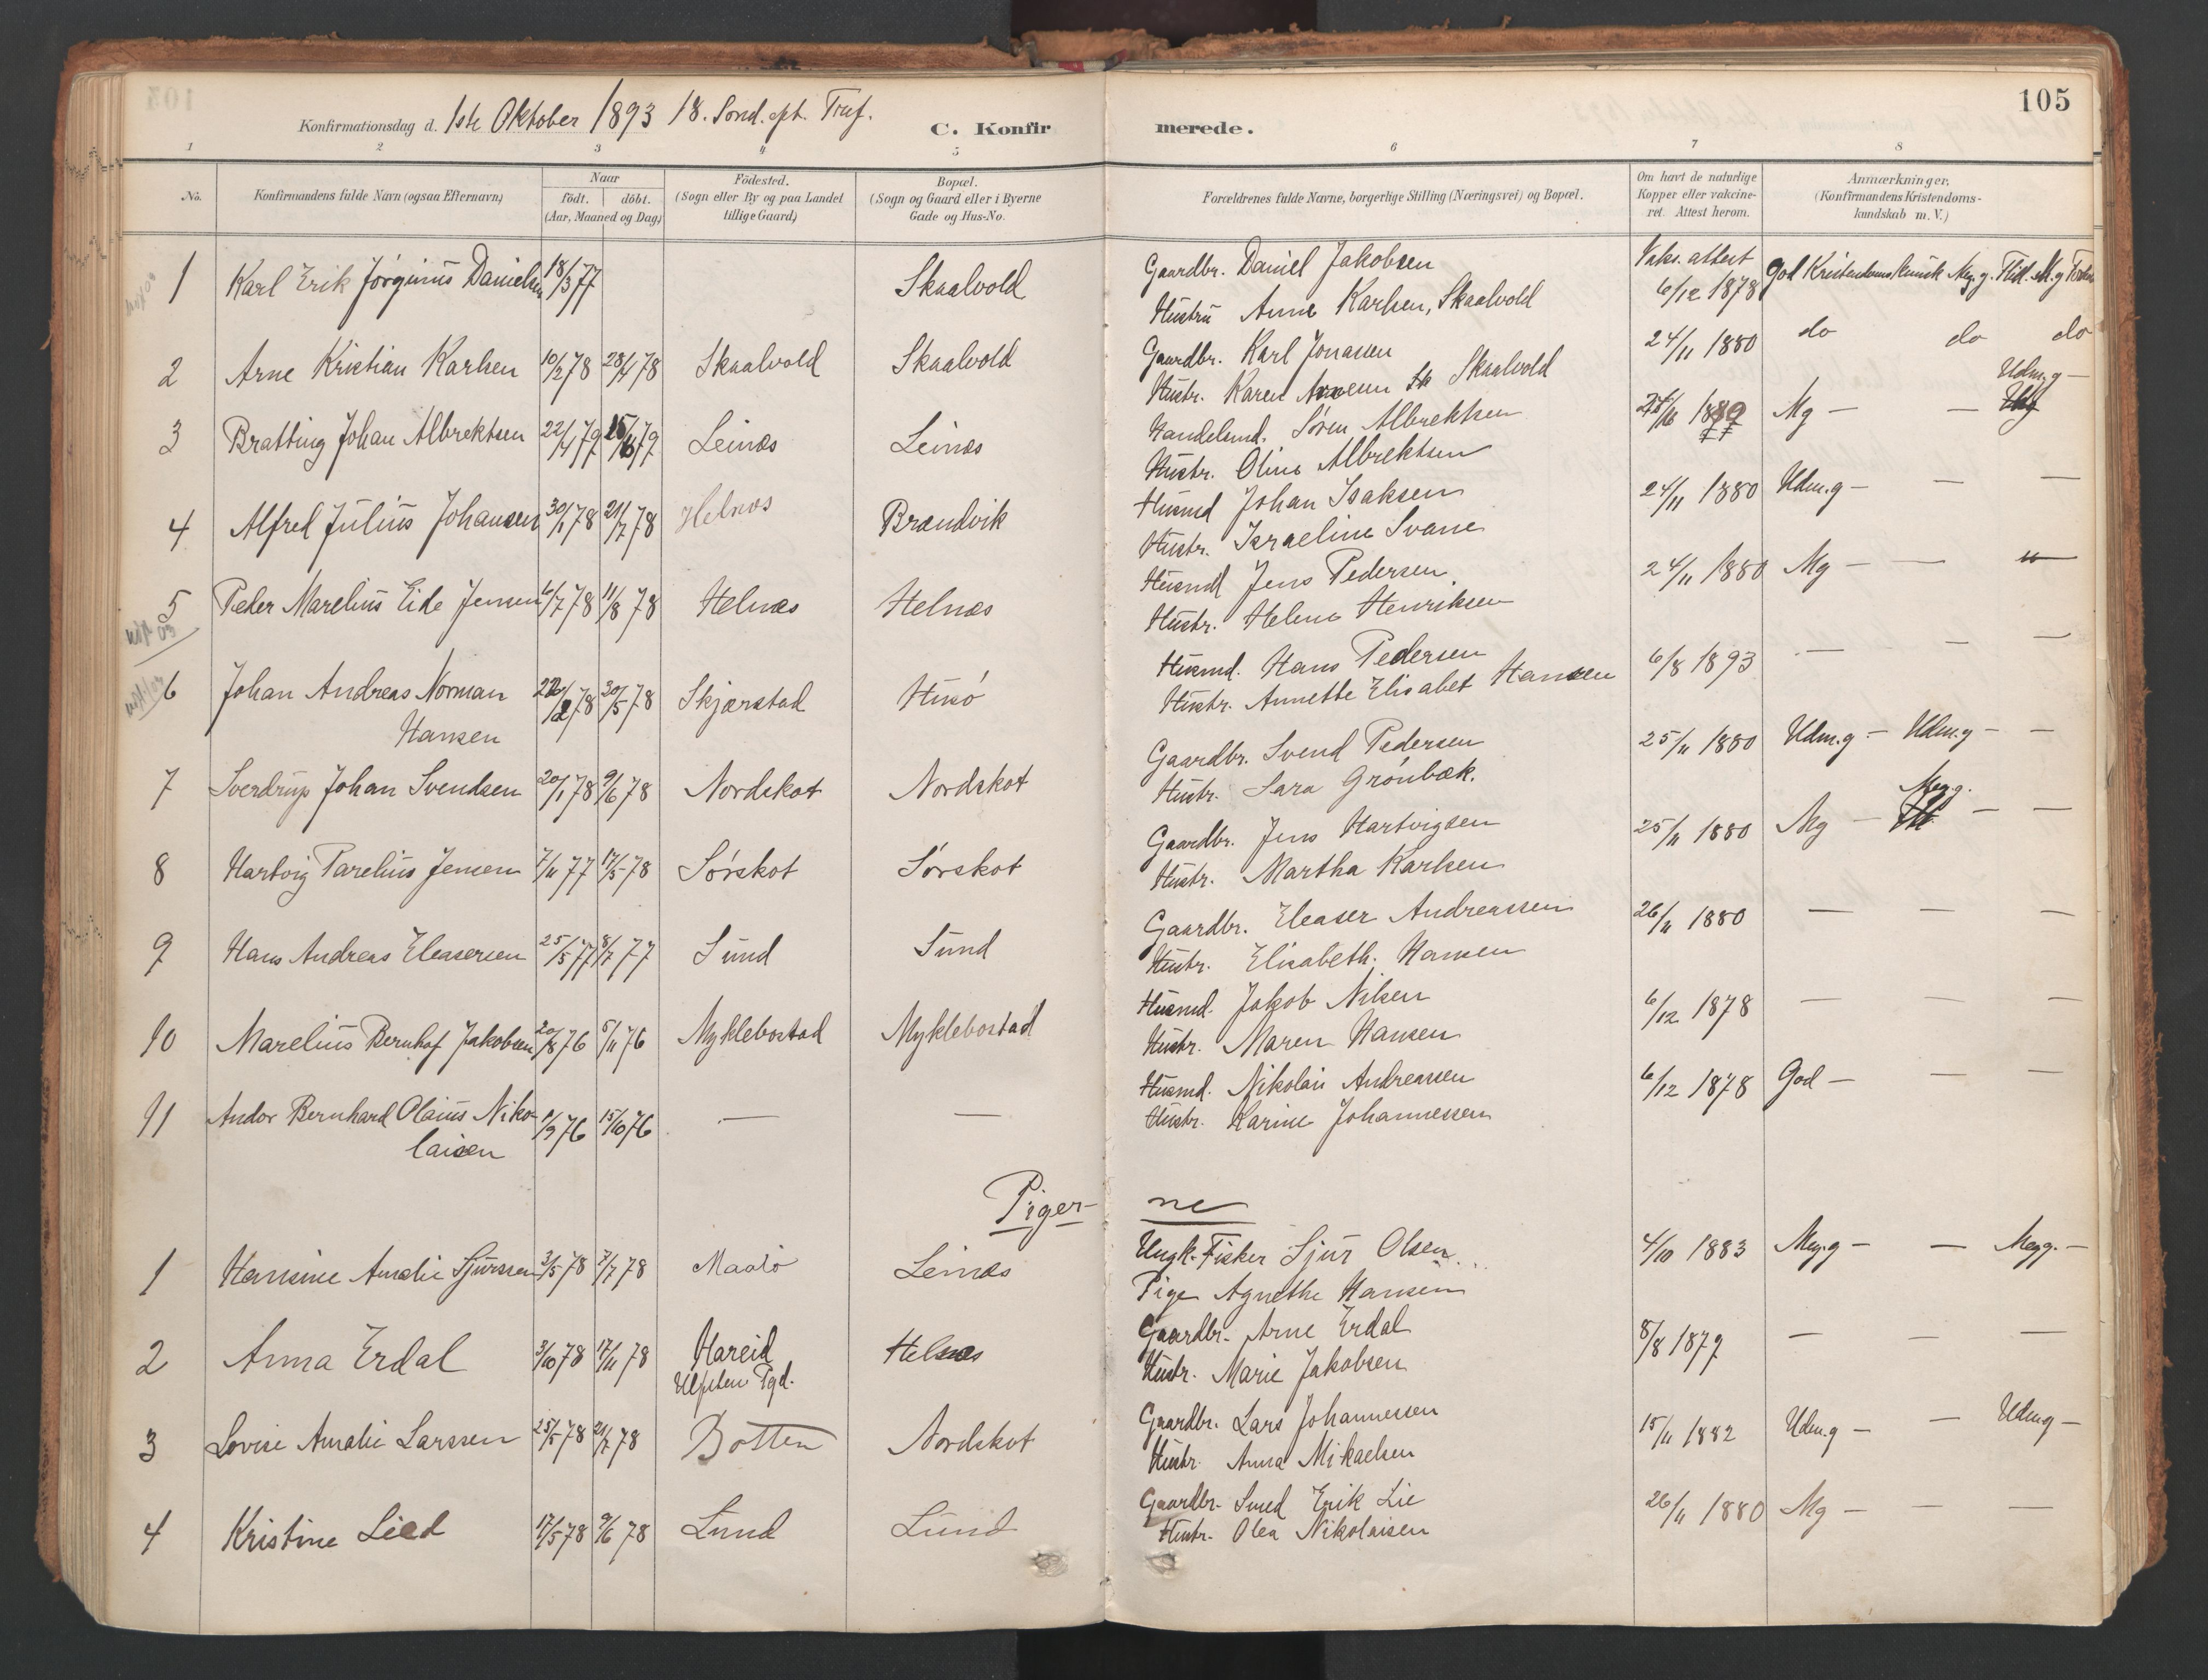 105
Konfirmationsdag d. 1ste Oktober 1893 18. Sønd. eft. Tref.
C. Konfirmerede.
1 2 3 4 5 6 7 8
No. Konfirmandens fulde Navn (ogsaa Efternavn) Naar födt. döbt. (Aar, Maaned og Dag) Födested. (Sogn eller By og paa Landet tillige Gaard) Bopæl. (Sogn og Gaard eller i Byerne Gade og Hus-No. Forældrenes fulde Navne, borgerlige Stilling (Næringsvei) og Bopæl. Om havt de naturlige Kopper eller vakcineret. Attest herom. Anmærkninger, (Konfirmandens Kristendomskundskab m. V.)
1 Karl Erik Jørginus Danielsen 18/3 77 Skaalvold Gaardbr. Daniel Jakobsen Vaks. attest
Hustru Anne Karlsen, Skaalvold 6/12 1878 God Kristendomskunsk Meg. g. Flid. M.g
2 Arne Kristian Karlsen 10/2 78 28/4 78 Skaalvold Skaalvold Gaardbr. Karl Jonassen 24/11 1880 do do do
Hustr. Karen Skaalvold
3 Bratting Johan Albrektsen 22/4 79 Leinæs Leinæs Handelsmd. Søren Albrektsen Mg — — Udm.g —
Hustr. Oline Albrektsen
4 Alfred Julius Johansen 30/1 78 21/7 78 Helnæs Brændvik Husmd Johan Isaksen 24/11 1880 Udm.g — — —
Hustr. Israeline Svane
5 Peder Marelius Eide Jensen 6/7 78 11/8 78 Helnæs Helnæs Husmd Jens Pedersen 24/11 1880 Mg — — "
Hustr. Helene Henriksen
6 Johan Andreas Norman 78 20/5 78 Skjærstad Husø Husmd. Hans Pedersen 6/8 1893 — — —
Hansen Hustr. Annette Elisabet Hansen
7 Sverdrup Johan Svendsen 20/1 78 9/6 78 Nordskot Nordskot Gaardbr. Svend Pedersen 25/11 1880 Udm.g — Udm.g — —
Hustr. Sara Grønbæk.
8 Hartvig Parelius Jensen 7/11 77 17/5 78 Sørskot Sørskot Gaardbr. Jens Hartvigsen 25/11 1880 Mg — Meg.g. — —
Hustr. Martha Karlsen
9 Hans Andreas Eleasersen 25/5 77 8/7 77 Sund Sund Gaardbr. Eleaser Andreassen 26/11 1880 — — —
Hustr. Elisabeth. Hansen
10 Marelius Bernhof Jakobsen 20/8 76 5/11 76 Myklebostad Myklebostad Husmd. Jakob Nilsen 6/12 1878 — — —
Hustr. Maren Hansen
11 Andor Bernhard Olaius Niko- 76 15/10 76 — — Husmd. Nikolai Andreassen 6/12 1878 God — — —
laisen Hustr. Karine Johannessen
Piger- ne
1 Hansine Amalie Sjursen 3/5 78 7/7 78 Maalø Leinæs Ungk. Fisker Sjur Olsen 4/10 1883 Meg.g — — Megg. —
Pige Agnethe Hansen
2 Anna Erdal 3/10 78 17/11 78 Hareid Helnæs Gaardbr. Arne Erdal 8/8 1879 — — —
Ulfsten Pgd. Hustr. Marie Jakobsen
3 Lovise Amalie Larssen 25/5 78 21/7 78 Botten Nordskot Gaardbr. Lars Johannessen 15/11 1882 Udm.g — — Udm.g —
Hustr. Anna Mikaelsen
4 Kristine Lied 17/5 78 9/6 78 Lund Lund Gaardbr. Smed Erik Lie 26/11 1880 Mg — — —
Hustr. Olea Nikolaisen